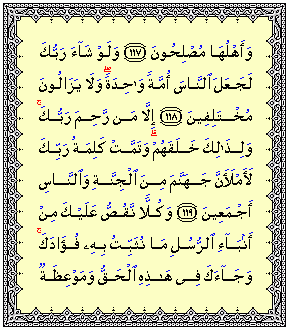 وَأَهْلُهَا مُصْلِحُونَ ١١٧ وَلَوْ شَآءَ رَبُّكَ
لَجَعَلَ ٱلنَّاسَ أُمَّةً وَٰحِدَةً ۖ وَلَا يَزَالُونَ
مُخْتَلِفِينَ ١١٨ إِلَّا مَن رَّحِمَ رَبُّكَ ۚ
وَلِذَٰلِكَ خَلَقَهُمْ ۗ وَتَمَّتْ كَلِمَةُ رَبِّكَ
لَأَمْلَأَنَّ جَهَنَّمَ مِنَ ٱلْجِنَّةِ وَٱلنَّاسِ
أَجْمَعِينَ ١١٩ وَكُلًّا نَّقُصُّ عَلَيْكَ مِنْ
أَنۢبَآءِ ٱلرُّسُلِ مَا نُثَبِّتُ بِهِۦ فُؤَادَكَ ۚ
وَجَآءَكَ فِى هَٰذِهِ ٱلْحَقُّ وَمَوْعِظَةٌ